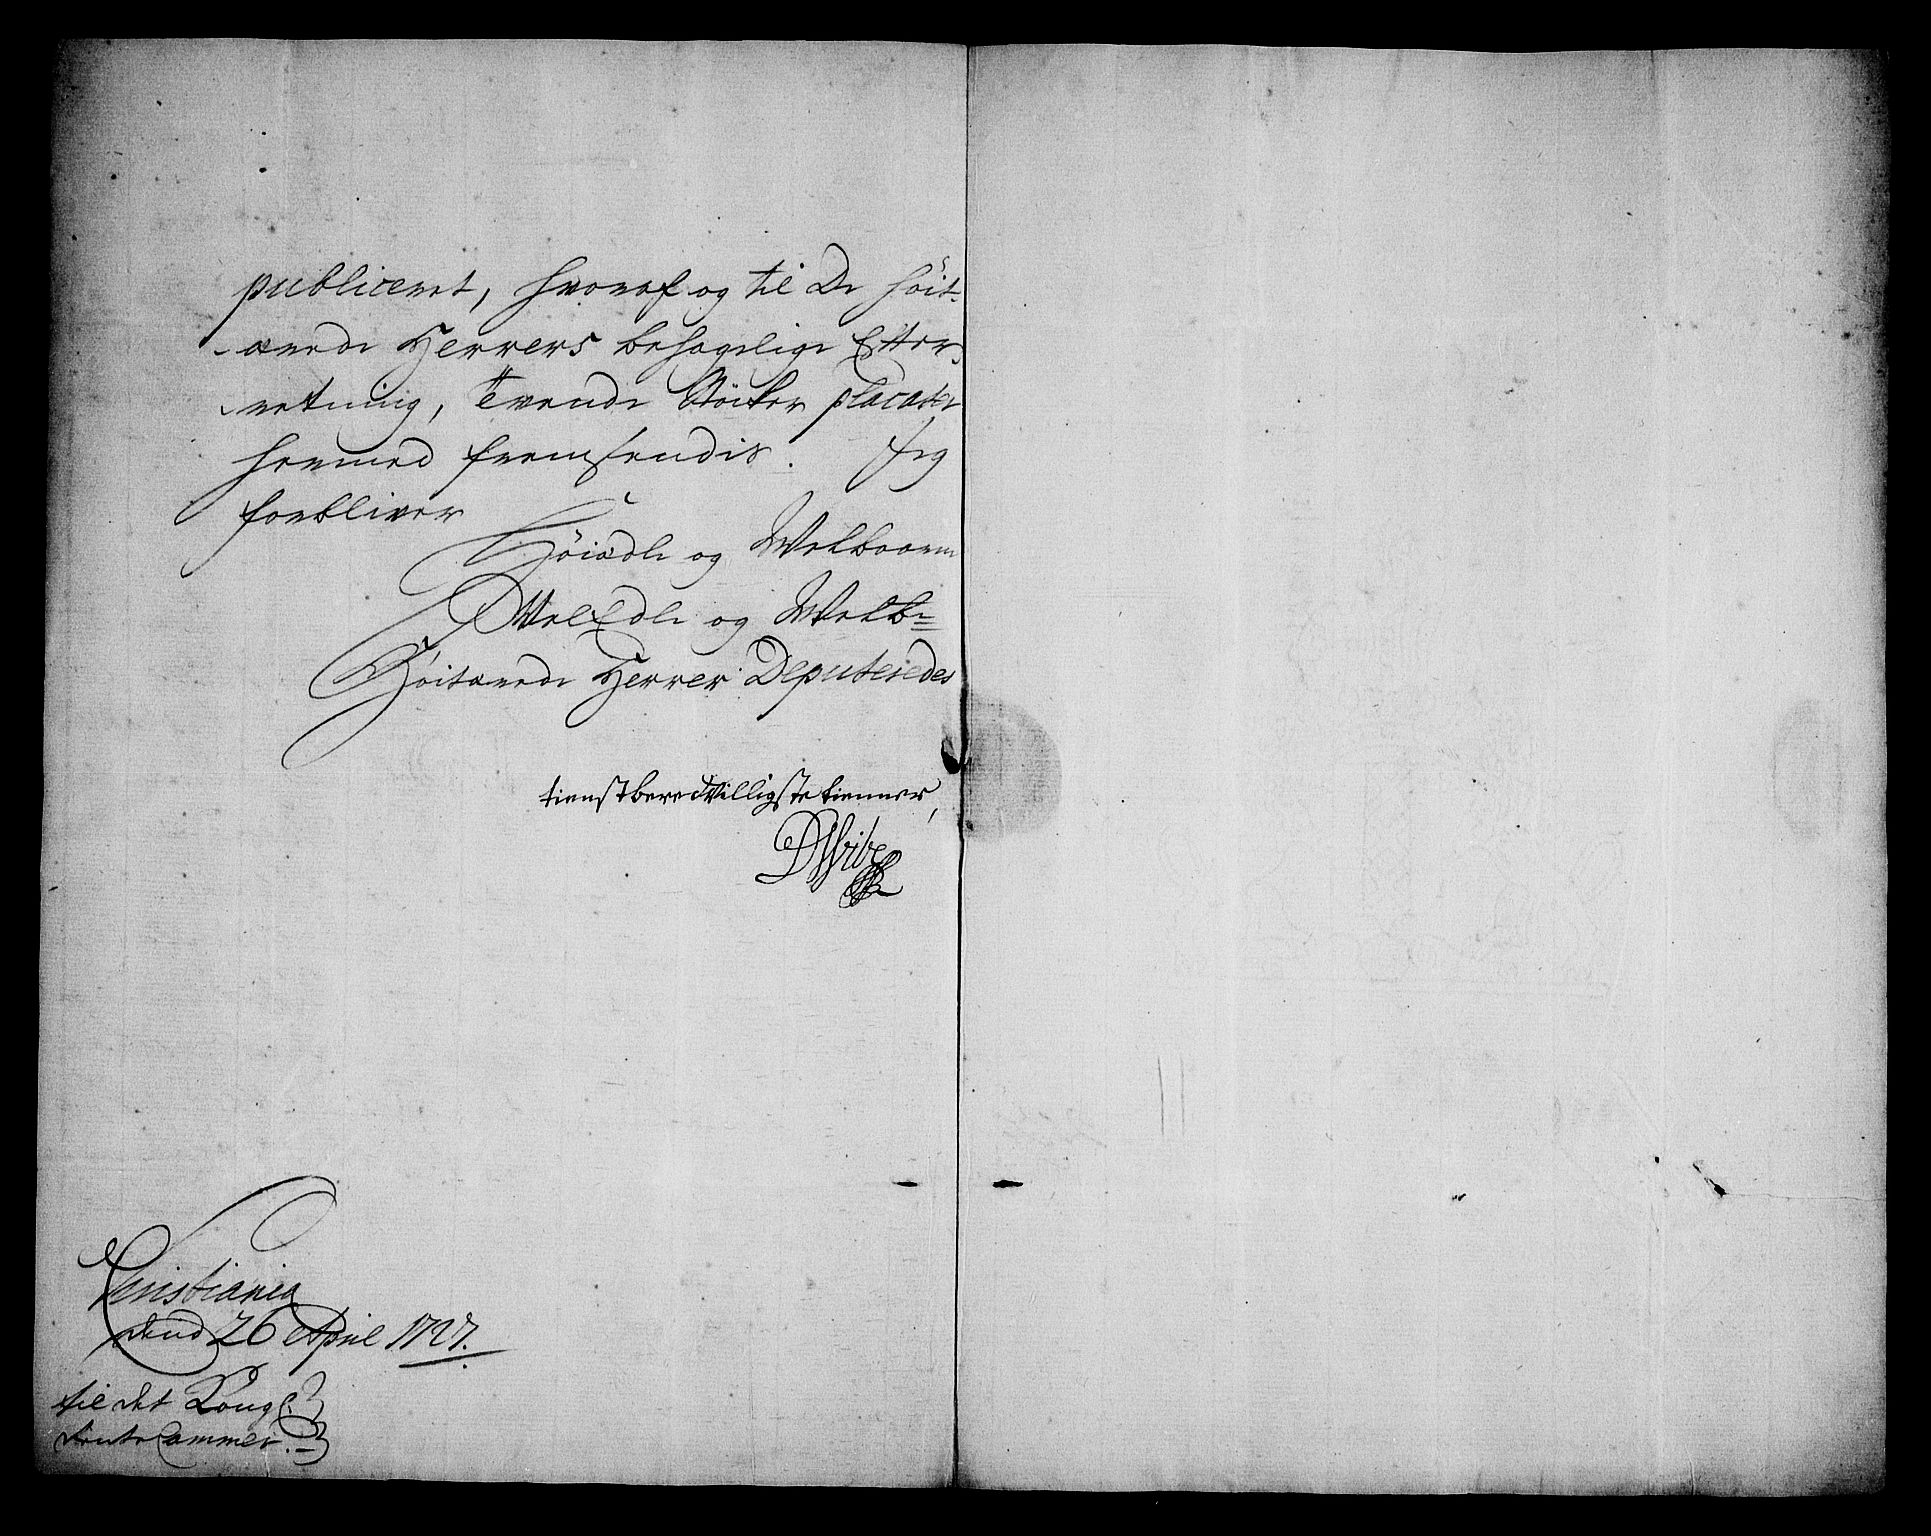 publiceret, hvoraf og til De høit-
ærede Herrers behagelige Efter-
retning, tvende støcker placater
hermed fremsendis. Jeg
forbliver
Høiædle og Welbaarne
WelEdle og Welb:
Høitærede Herrer Deputeredes
tienstberedWilligste tienner,
DWibe
Christiania
dend 26 April 1727.
til det Kongl:
RenteCammer.